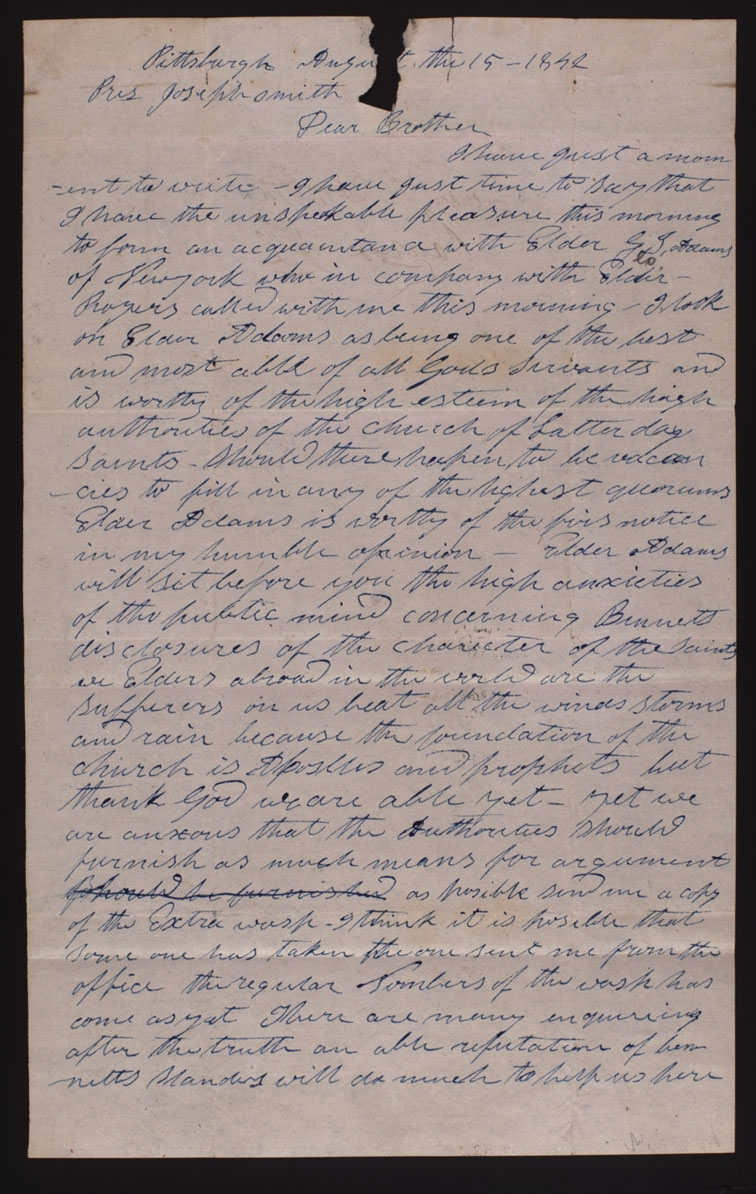 Pittsburgh Augu t the 15 - 1842
Pres Joseph smith
Dear Brother
I have just a mom
-ent to write - I have just time to say that
I have the unspekable pleasure this morning
to form an acquantance with Elder G. J. Adams
of Newyork who in company with Elder -
Rogers called with me this morning - I look
on Elder Adams as being one of the best
and most able of all Gods servants and
is worthy of the high esteem of the high
authorities of the church of Latter day
Saints - Should there hapen to be vacan
-cies to fill in any of the highest quorums
Elder Adams is worthy of the firs notice
in my humble opinion - Elder Adams
will sit before you the high anxieties
of the public mind concerning Bennett
disclosures of the charicter of the saints
we Elders abroad in the world are the
sufferers on us beat all the winds storms
and rain because the foundation of the
church is Apostles and prophets but
thank God we are able yet - yet we
are anxous that the Authorities should
furnish as much means for argument
should be furnished as posible send me a copy
of the Extra wasp - I think it is posible that
some one has taken the one sent me from the
office the regular Nombers of the wasp has
come as yet There are many enquireing
after the truth an able refutation of ben
-netts slanders will do much to help us here